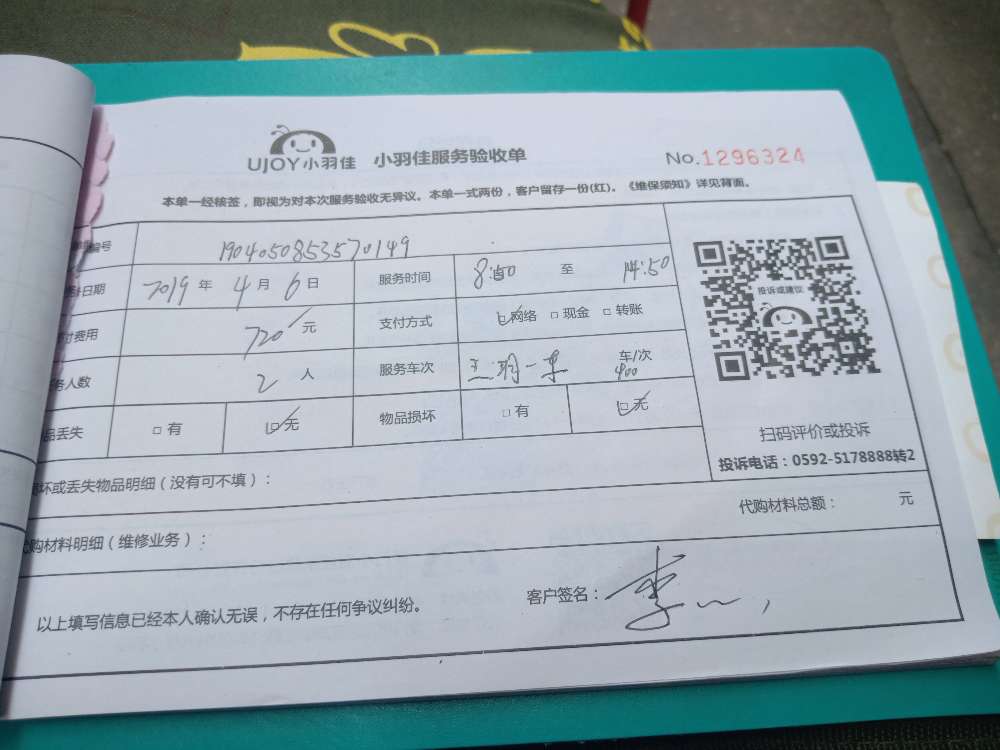 UJOY小羽佳 小羽佳服务验收单 No.1296324
本单一经核签，即视为对本次服务验收无异议。本单一式两份，客户留存一份(红)。《维保须知》详见背面。
编号 1904050853570149
日期 2019 年 4 月 6 日 服务时间 8:50 至 14:50
付费用 720 元 支付方式 □网络 □现金 □转账
务人数 2 人 服务车次 车/次 400
品丢失 □有 □无 物品损坏 □有 □无
投诉或建议
扫码评价或投诉
投诉电话：0592-5178888转2
损坏或丢失物品明细（没有可不填）：
代购材料明细（维修业务）： 代购材料总额： 元
以上填写信息已经本人确认无误，不存在任何争议纠纷。 客户签名：李